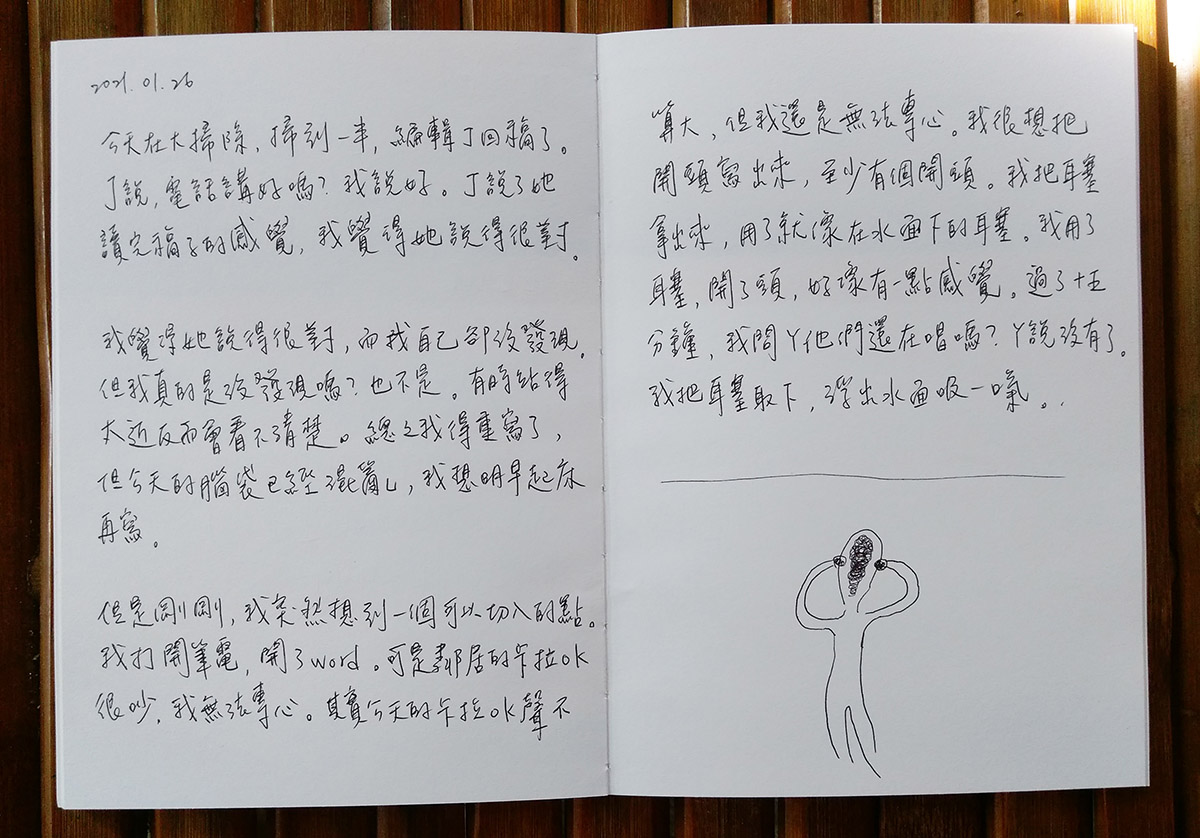 2021.01.26
今天在大掃除，掃到一半，編輯J回稿了。
J說，電話講好嗎？我說好。J說了她
讀完稿子的感覺，我覺得她說得很對。
我覺得她說得很對，而我自己卻沒發現。
但我真的是沒發現嗎？也不是。有時站得
太近反而會看不清楚。總之我得重寫了，
但今天的腦袋已經混亂，我想明早起床
再寫。
但是剛剛，我突然想到一個可以切入的點。
我打開筆電，開了word。可是鄰居的卡拉OK
很吵，我無法專心。其實今天的卡拉OK聲不
算大，但我還是無法專心。我很想把
開頭寫出來，至少有個開頭。我把耳塞
拿出來，用了就像在水面下的耳塞。我用了
耳塞，開了頭，好像有一點感覺。過了十五
分鐘，我問丫他們還在唱嗎？丫說沒有了。
我把耳塞取下，浮出水面吸一口氣。